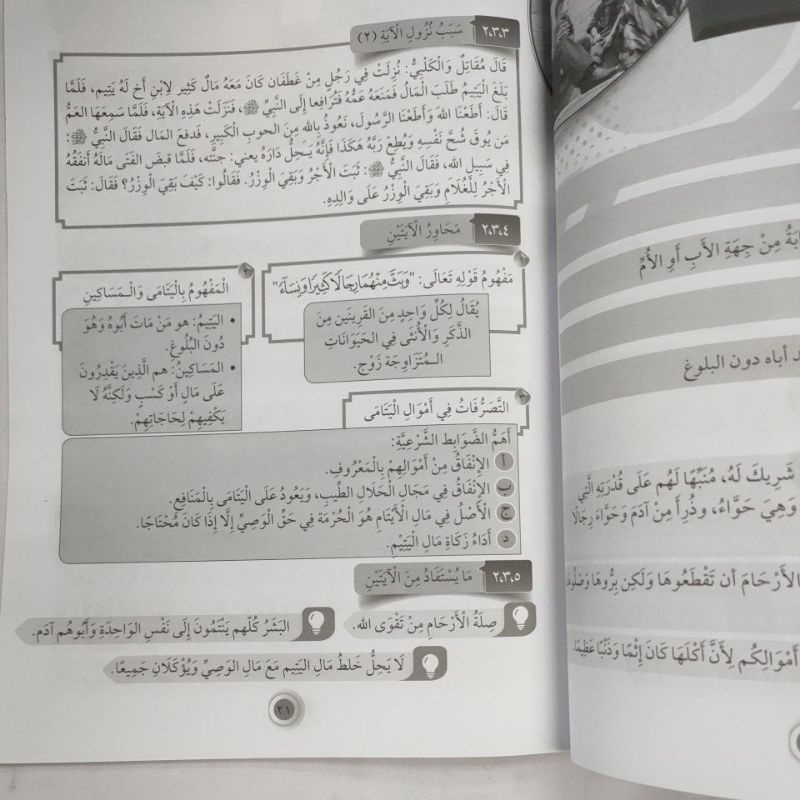 ٢،٣،٣ سَبَبُ نُزُولِ الْآيَةِ (٢)
قَالَ مُقَاتِلٌ وَالْكَلْبِيُّ: نُزِلَتْ فِي رَجُلٍ مِنْ غَطَفَان كَانَ مَعَهُ مَالٌ كَثِيْر لِابْنِ أَخٍ لَهُ يَتِيم، فَلَمَّا
بَلَغَ الْيَتِيمُ طَلَبَ الْمَالُ فَمَنَعَهُ عَمُّهُ فَتَرَافعا إِلَى النَّبِيِّ ﷺ، فَنَزَلَتْ هَذِهِ الْآيَة، فَلَمَّا سَمِعَهَا الْعَمُّ
قَالَ: أَطَعْنَا اللهَ وَأَطَعْنَا الرَّسُولَ، نَعُوذُ بِالله مِنَ الحوبِ الْكَبِيرِ، فَدفعَ المَال فَقَالَ النَّبِيُّ ﷺ:
مَن يُوقَ شُحَّ نَفْسِهِ وَيُطِع رَبَّهُ هَكَذَا فَإِنَّهُ يَـحلُّ دَارَهُ يعني: جنّته، فَلَمَّا قبضَ الفَتَى مَالَهُ أَنفَقَهُ
فِي سَبِيلِ الله، فَقَالَ النَّبِيُّ ﷺ: ثَبَتَ الْأَجْرُ وَبَقِيَ الْوِزْرُ. فَقَالُوا: كَيْفَ بَقِيَ الْوِزْرُ؟ فَقَالَ: ثَبَتَ
الْأَجْرُ لِلْغُلَامِ وَبَقِيَ الْوِزْرُ عَلَى وَالِدِهِ.
٢،٣،٤ مَحَاوِرُ الْآيَتَيْنِ
١ مَفْهُومُ قَوْلِهِ تَعَالَى: "وَبَثَّ مِنْهُمَا رِجَالًا كَثِيرًا وَنِسَاءً"
يُقَالُ لِكُلِّ وَاحِدٍ مِنَ القَرِينَينِ مِنَ
الذَّكَرِ وَالْأُنْثَى فِي الحَيَوَانَاتِ
الـمُتَزَاوِجَة زَوْج.
٢ الْمَفْهُومُ بِالْيَتَامَى وَالْـمَسَاكِينِ
• اليَتِيمُ: هو مَنْ مَاتَ أَبُوهُ وَهُوَ
دُونَ البُلُوغِ.
• المَسَاكِينُ: هم الَّذِينَ يَقْدِرُونَ
عَلَى مَالٍ أَوْ كَسْبٍ وَلَكِنَّهُ لَا
يَكْفِيهِمْ لِحَاجَاتِهِمْ.
٣ التَّصَرُّفَاتُ فِي أَمْوَالِ الْيَتَامَى
أَهَمُّ الضَّوَابِطِ الشَّرْعِيَّةِ:
أ الإِنْفَاقُ مِنْ أَمْوَالِهِمْ بِالْمَعْرُوفِ.
ب الإِنْفَاقُ فِي مَجَالِ الْحَلَالِ الطَّيِّبِ، وَيَعُودُ عَلَى الْيَتَامَى بِالْمَنَافِعِ.
ج الْأَصْلُ فِي مَالِ الْأَيْتَامِ هُوَ الْحُرْمَة فِي حَقِّ الْوَصِيِّ إِلَّا إِذَا كَانَ مُحْتَاجًا.
د أَدَاءُ زَكَاةِ مَالِ الْيَتِيْمِ.
٢،٣،٥ مَا يُسْتَفَادُ مِنَ الْآيَتَيْنِ
صِلَةُ الْأَرْحَامِ مِنْ تَقْوَى الله.
البَشَرُ كُلُّهم يَنْتَمُونَ إِلَى نَفْسِ الوَاحِدَةِ وَأَبُوهُم آدَم.
لَا يَحِلُّ خَلطُ مَالِ اليَتِيم مَعَ مَالِ الوَصِيِّ وَيُؤْكَلَانِ جَمِيعًا.
٢١
مِنْ جِهَةِ الأَبِ أَوِ الأُمِّ
أباه دون البلوغ
شَرِيكَ لَهُ، مُنَبِّهًا لَهُم عَلَى قُدْرَتِهِ الَّتِي
وَهِيَ حَوَّاءُ، وذُرِأَ مِنْ آدَمَ وَحَوَّاءَ رِجَالًا
الأَرْحَامَ أن تَقْطَعُوهَا وَلَكِن بِرُّوهَا وَصَلُوهَا
أَمْوَالِكُم لِأَنَّ أَكْلَهَا كَانَ إِثْمًا وَذَنْبًا عَظِيمًا.